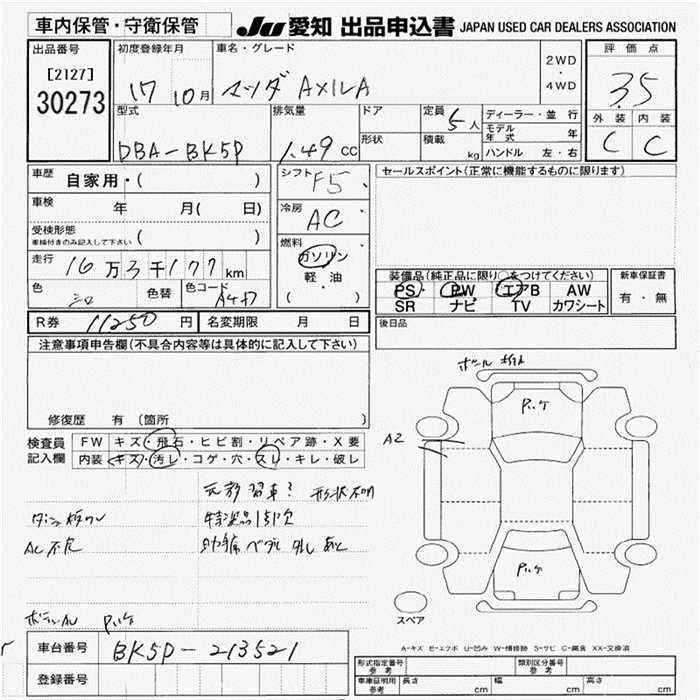 車内保管・守衛保管
JU 愛知 出品申込書 JAPAN USED CAR DEALERS ASSOCIATION
出品番号
[2127]
30273
初度登録年月
17 10月
車名・グレード
マツダ AXILA
2WD
・
4WD
評価点
3.5
外装 内装
C C
型式
DBA-BK5P
排気量
1.49 CC
ドア
形状
定員
5人
積載
kg
ディーラー・並 行
モデル年式 年
ハンドル 左・右
車歴 自家用・( )
車検 年 月( 日)
受検形態
車検付きのみ記入して下さい ( )
走行 16万3千177km
色 シロ 色替 色コード A4D
シフト F5
冷房 AC
燃料
ガソリン
軽・油
( )
セールスポイント(正常に機能するものに限ります)
装備品(純正品に限り○をつけてください)
PS・ PW エアB AW
SR ナビ TV カワシート
新車保証書
有・無
R券 11250 円 名変期限 月 日
後日品
注意事項申告欄(不具合内容等は具体的に記入して下さい)
修復歴 有(箇所 )
検査員
記入欄
FW キズ・飛石・ヒビ割・リペア跡・X要
内装 キズ・汚レ・コゲ・穴・スレ・キレ・破レ
元教習車? 形状不明
AC不良
助手席ペダル外しあと
A2
スペア
A-キズ E-エクボ U-凹み W-補修跡 S-サビ C-腐食 XX-交換済
車台番号 BK5P-213521
登録番号
形式指定番号
参考
類別区分番号
参考
車庫証明用
参考
長さ cm 幅 cm 高さ cm